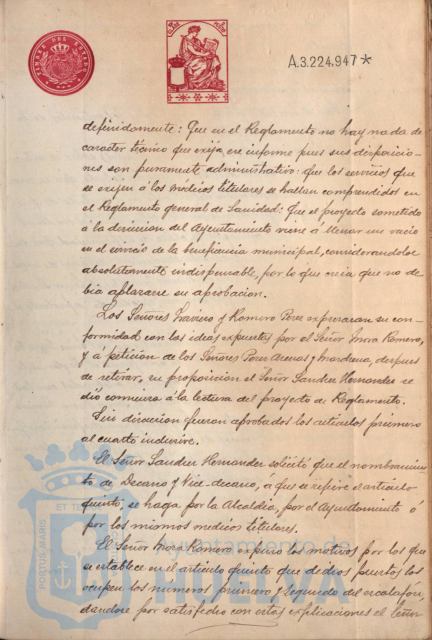 TIMBRE DEL ESTADO
A.3.224.947*
definidamente: Que en el Reglamento no hay nada de
caracter técnico que exija ese informe pues sus disposicio-
nes son puramente administrativo: que los servicios que
se exijen á los medicos titulares se hallan comprendidos en
el Reglamento general de Sanidad: Que el proyecto sometido
á la discusion del Ayuntamiento viene á llenar un vacio
en el servicio de la beneficencia municipal, considerandolo
absolutamente indispensable, por lo que creia que no de-
bia aplazarse su aprobacion.
Los Señores y Romero Perez expresaron su con-
formidad con las ideas expuestas por el Señor Mora Romero,
y á peticion de los Señores Perez y, despues
de retirar, su proposicion el Señor Sanchez Hernandez se
dió comienzo á la lectura del proyecto de Reglamento.
Sin discusion fueron aprobados los artículos primero
al cuarto inclusive.
El Señor Sanchez Hernandez solicitó que el nombramien-
to de Decano y Vice-decano, á que se refiere el artículo
quinto, se haga por la Alcaldia, por el Ayuntamiento ó
por los mismos medicos titulares.
El Señor Mora Romero expuso los motivos por los que
se establece en el artículo quinto que dichos puestos los
ocupen los numeros primero y segundo del escalafon,
dandose por satisfecho con estas explicaciones el Señor
PORTUS MARIS ET TE
Ayuntamiento de
HUELVA